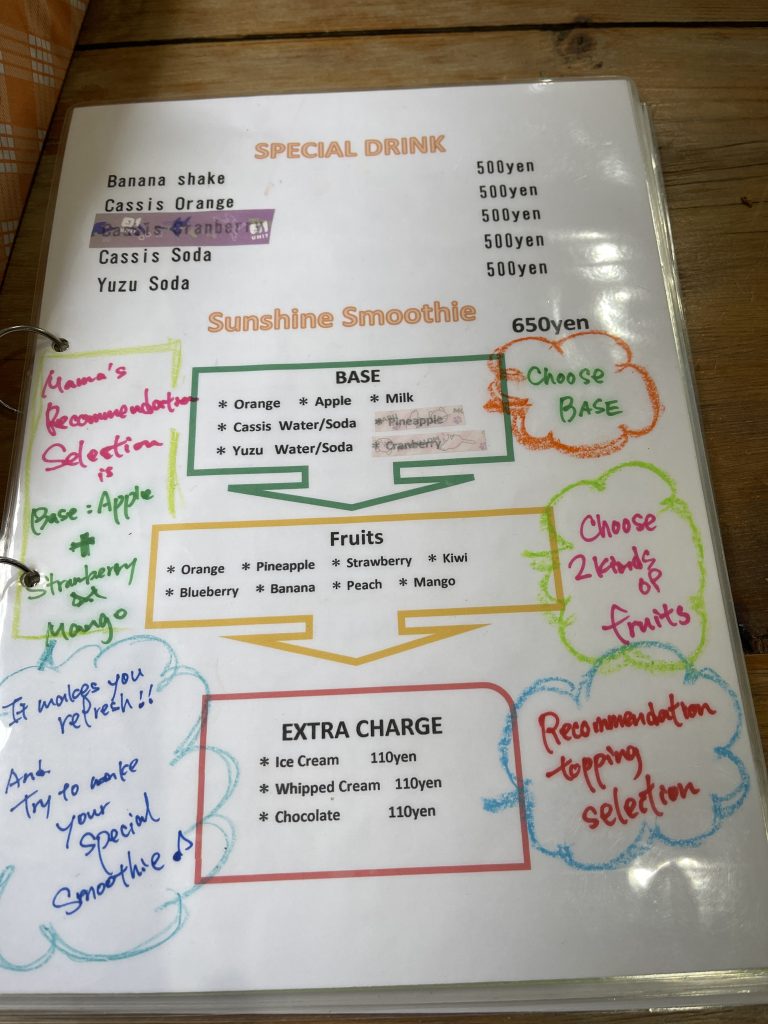 SPECIAL DRINK
Banana shake 500yen
Cassis Orange 500yen
Cassis Cranberry 500yen
Cassis Soda 500yen
Yuzu Soda 500yen
Sunshine Smoothie 650yen
BASE
* Orange * Apple * Milk
* Cassis Water/Soda * Pineapple
* Yuzu Water/Soda * Cranberry
Choose
BASE
Mama's
Recommendation
Selection
is
Base : Apple
+
Stranberry
Mango
Fruits
* Orange * Pineapple * Strawberry * Kiwi
* Blueberry * Banana * Peach * Mango
Choose
2 kinds
of
fruits
EXTRA CHARGE
* Ice Cream 110yen
* Whipped Cream 110yen
* Chocolate 110yen
Recommendation
topping
selection
It makes you
refresh!!
And
Try to make
your
special
smoothie ♪